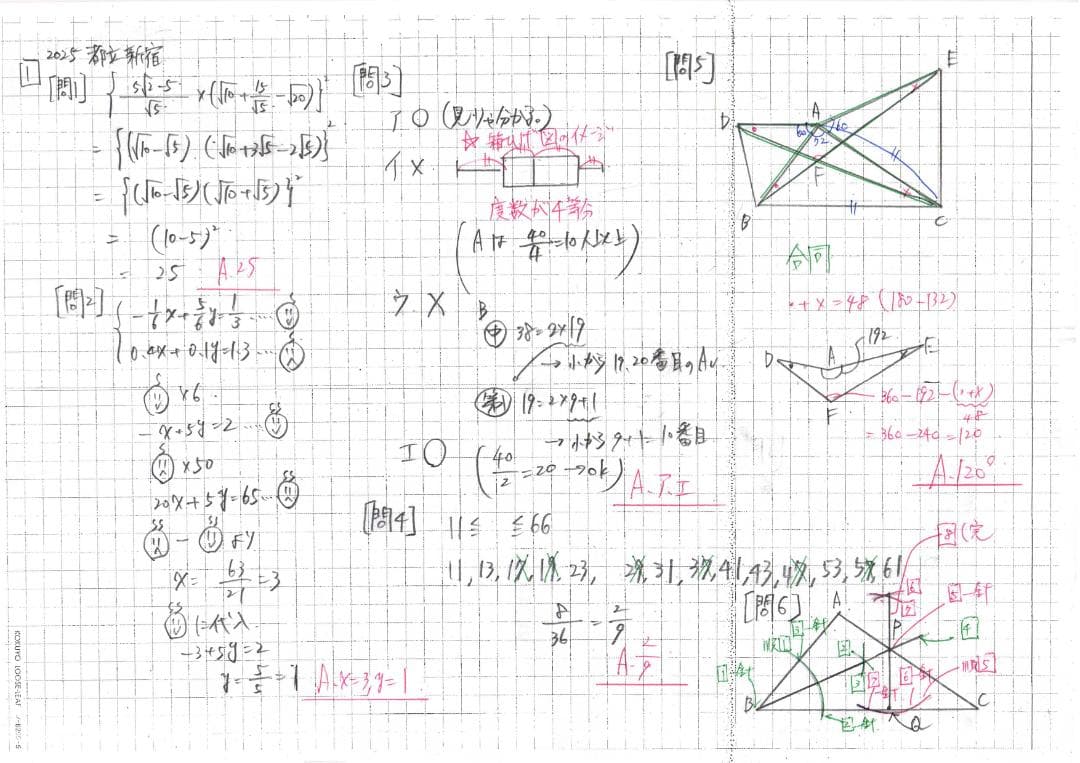 2025 都立新宿
1
[問1] {(5√2-5)/√5 × (√10 + 15/√5 - √20)}²
= {(√10-√5) (√10+3√5-2√5)}²
= {(√10-√5)(√10+√5)}²
= (10-5)²
= 25 A.25
[問2]
-1/6x+5/6y=1/3 …
0.4x+0.1y=1.3 …
×6
-x+5y=2 …
×50
20x+5y=65 …
- より
x= 63/21 =3
に代入
-3+5y=2
y= 5/5 =1
A.x=3,y=1
[問3]
ア ○
☆箱ひげ図のイメージ
イ ×
度数が4等分
(Aは 40/4 =10人以上)
ウ ×
B
中 38=2×19
→小から19,20番目のAv.
第1 19=2×9+1
→小から9+1=10番目
エ ○
(40/2 =20 →ok)
A.ア.エ
[問4]
11≦ ≦66
11,13,17,19,23, 29,31,37,41,43,47,53,59,61
8/36 = 2/9
A. 2/9
[問5]
E
D
A
60
60
F
B
C
合同
・+×=48 (180-132)
192
D
A
E
F
360-192-(・+×)
48
=360-240=120
A.120°
[問6]
8(完
A
P
5-針
4
1-針
B
2-針
Q
C